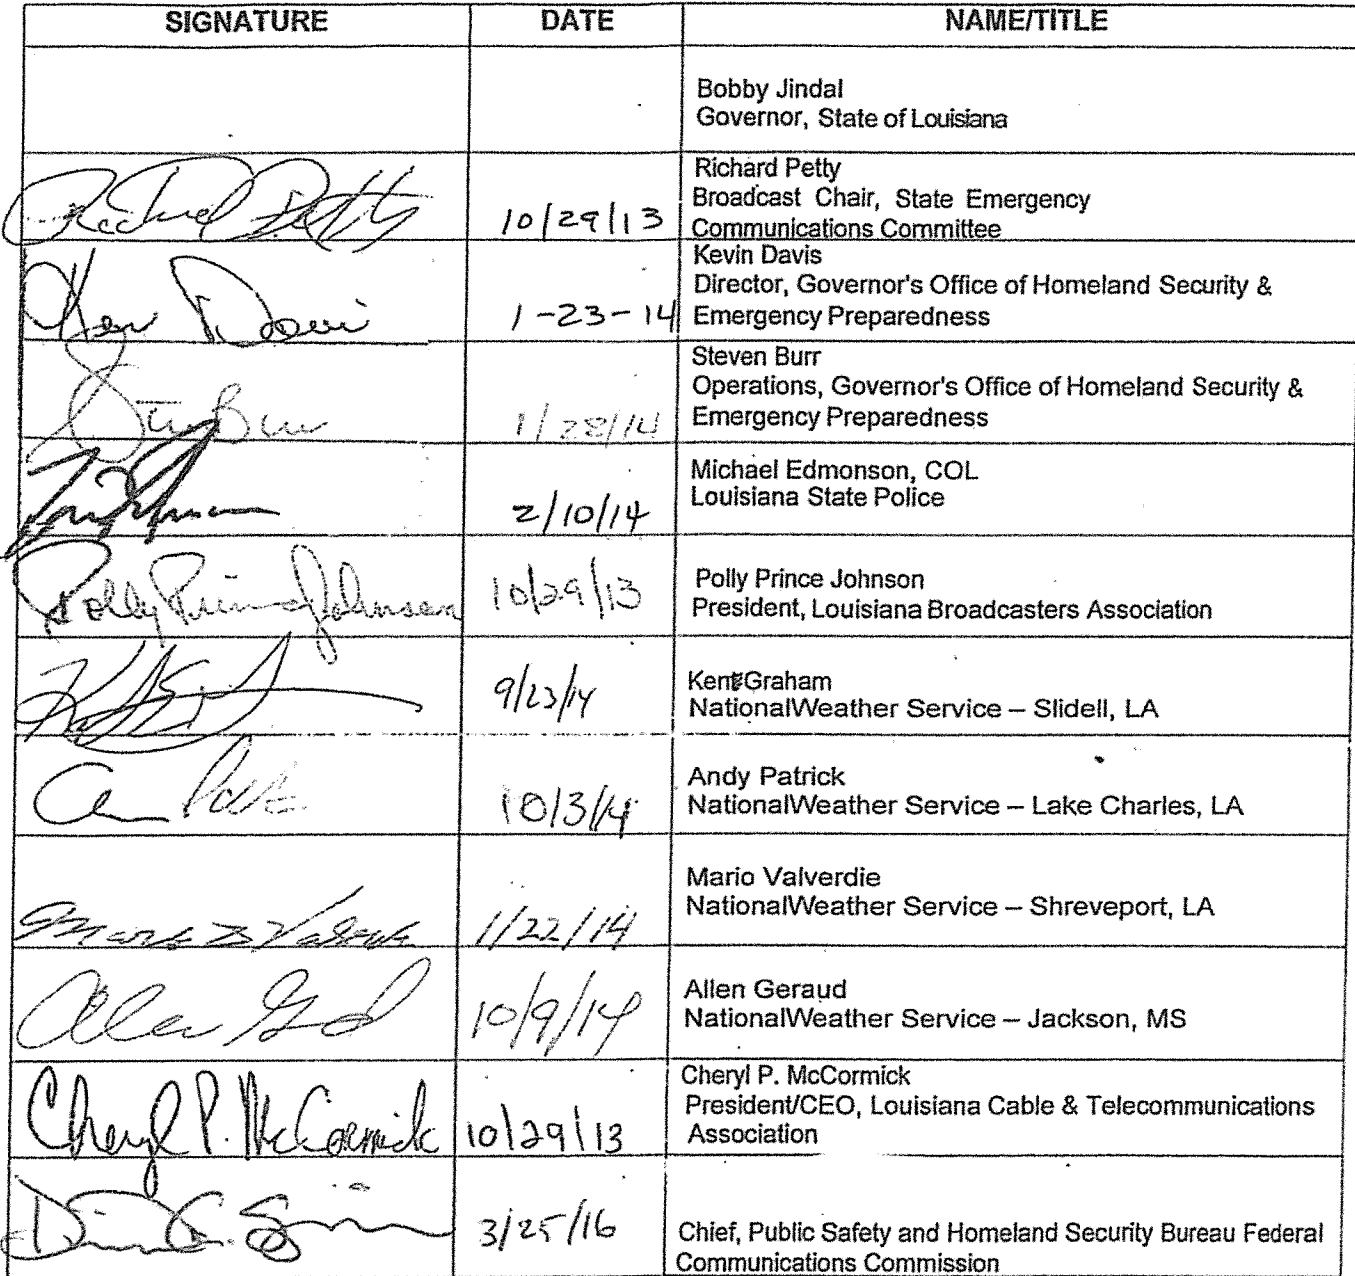 SIGNATURE DATE NAME/TITLE
Bobby Jindal
Governor, State of Louisiana
Richard Petty
10/29/13
Richard Petty
Broadcast Chair, State Emergency
Communications Committee
Kevin Davis
1-23-14
Kevin Davis
Director, Governor's Office of Homeland Security &
Emergency Preparedness
1/28/14
Steven Burr
Operations, Governor's Office of Homeland Security &
Emergency Preparedness
2/10/14
Michael Edmonson, COL
Louisiana State Police
Polly Prince Johnson
10/29/13
Polly Prince Johnson
President, Louisiana Broadcasters Association
9/23/14
Graham
NationalWeather Service – Slidell, LA
10/3/14
Andy Patrick
NationalWeather Service – Lake Charles, LA
1/22/14
Mario Valverdie
NationalWeather Service – Shreveport, LA
10/9/14
Allen Geraud
NationalWeather Service – Jackson, MS
Cheryl P. McCormick
10/29/13
Cheryl P. McCormick
President/CEO, Louisiana Cable & Telecommunications
Association
3/25/16
Chief, Public Safety and Homeland Security Bureau Federal
Communications Commission